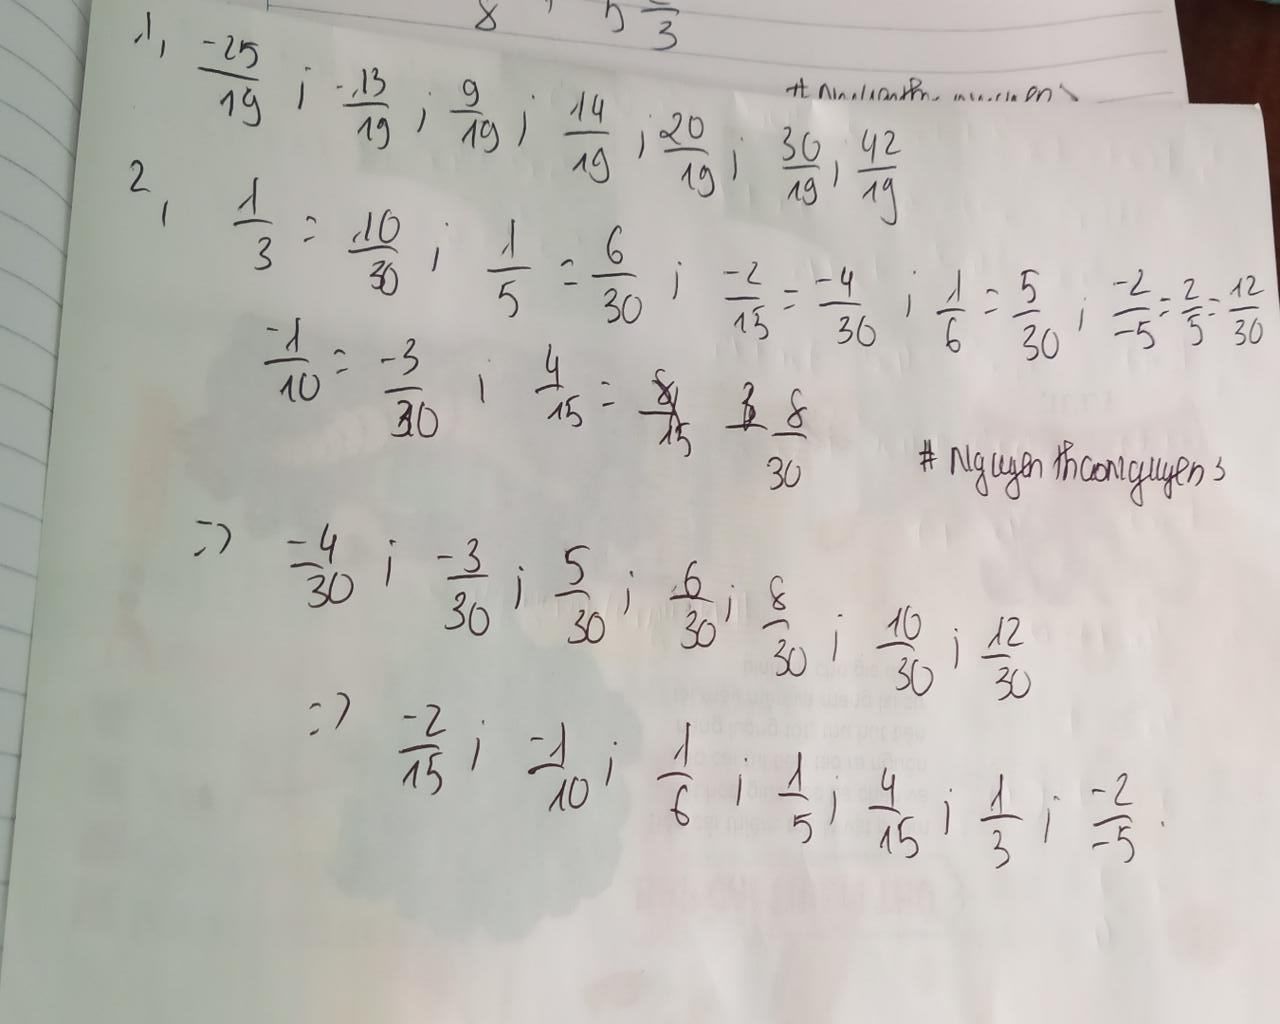 8 , 5 2/3
1, -25/19 ; -13/19 ; 9/19 ; 14/19 ; 20/19 ; 30/19 ; 42/19
2, 1/3 = 10/30 ; 1/5 = 6/30 ; -2/15 = -4/30 ; 1/6 = 5/30 ; -2/-5 = 2/5 = 12/30
-1/10 = -3/30 ; 4/15 = 8/30
# Nguyenthaonguyens
=> -4/30 ; -3/30 ; 5/30 ; 6/30 ; 8/30 ; 10/30 ; 12/30
=> -2/15 ; -1/10 ; 1/6 ; 1/5 ; 4/15 ; 1/3 ; -2/-5 .